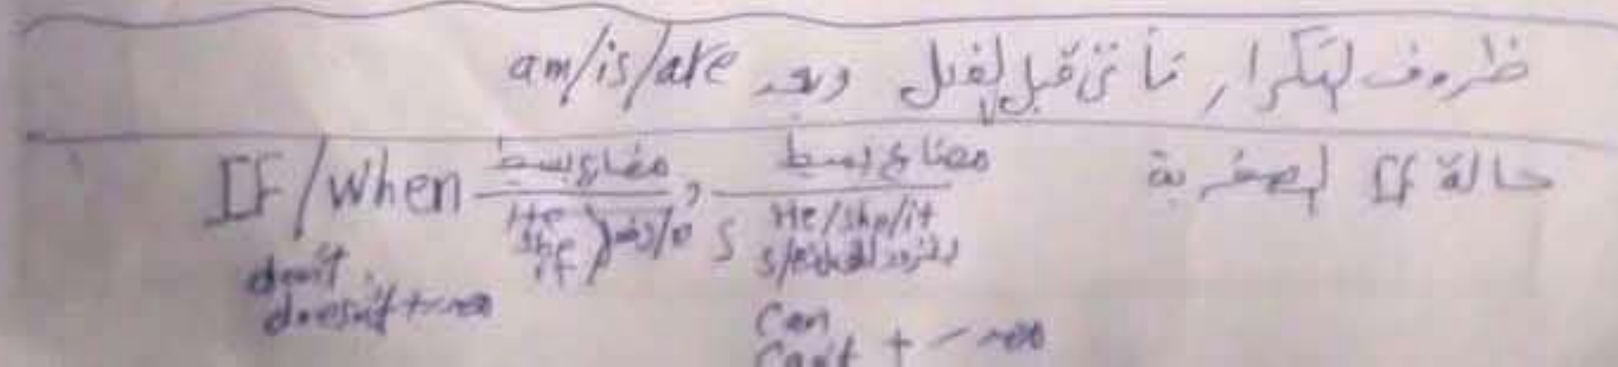 ظروف التكرار تأتي قبل الفعل وبعد am/is/are
حالة If الصفرية
IF/when مضارع بسيط , مضارع بسيط
He
she
it
He/she/it
don't
doesn't +
can
can't +